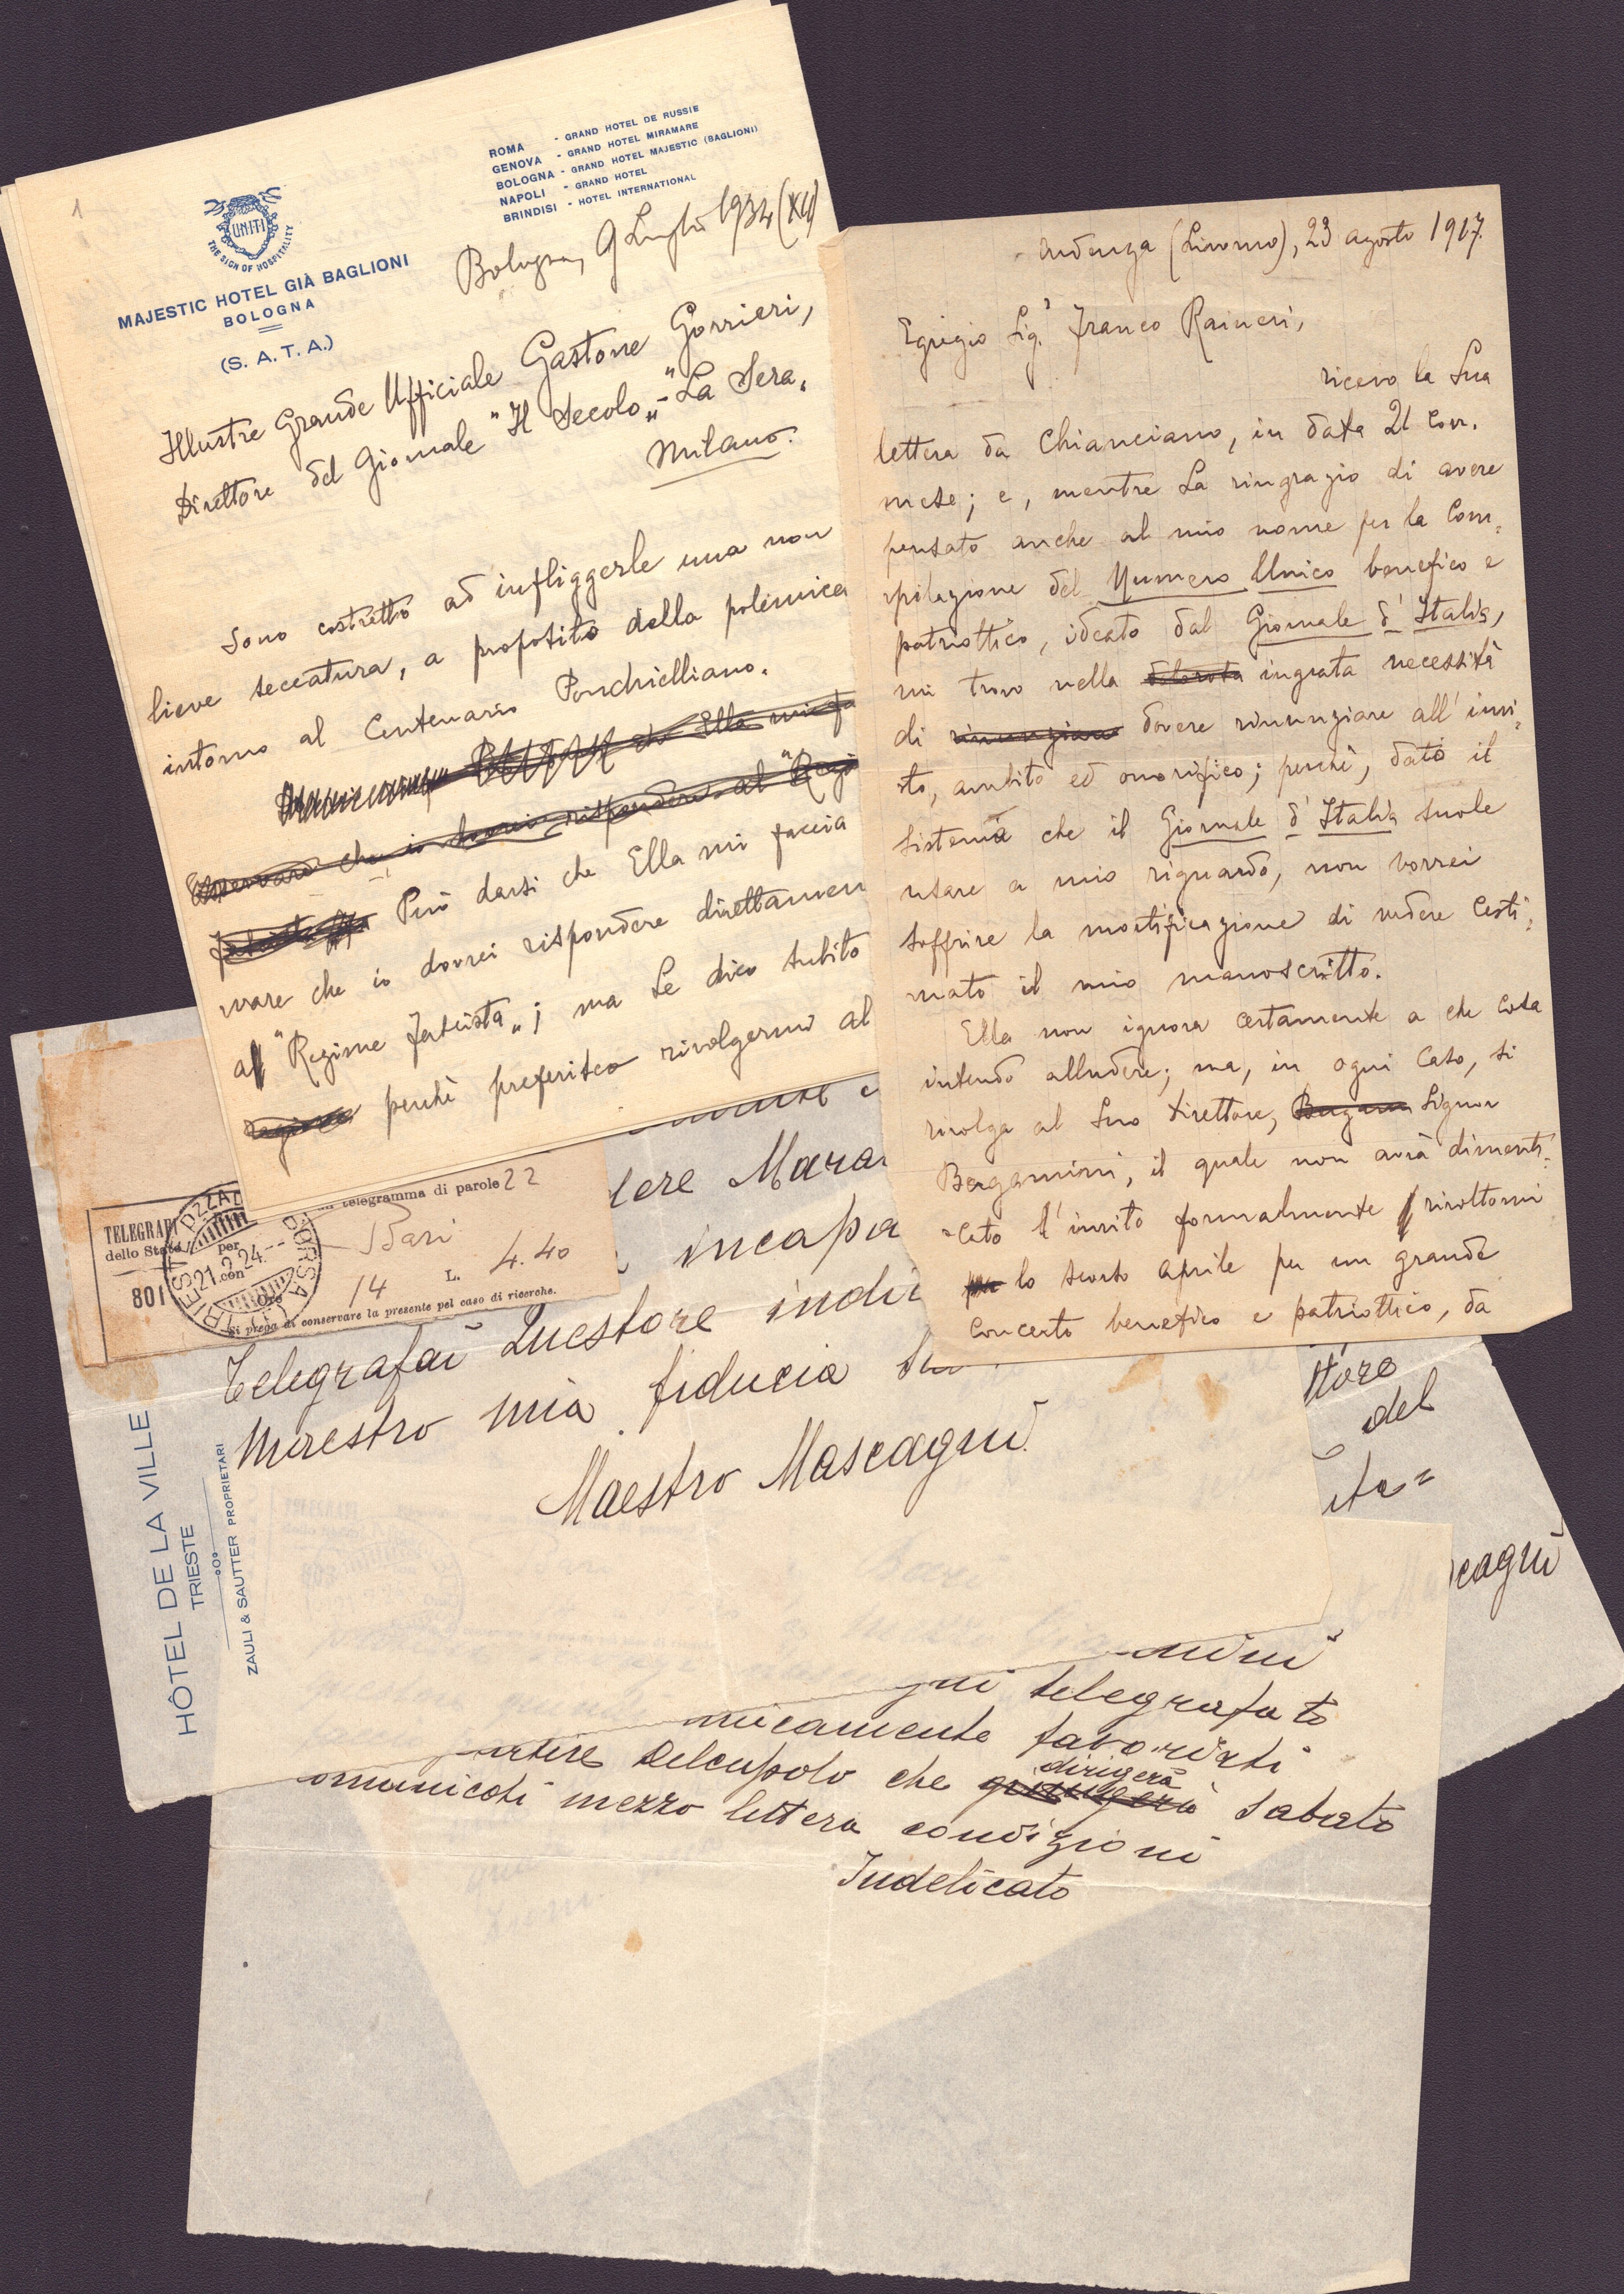 1
UNITI
THE SIGN OF HOSPITALITY
MAJESTIC HOTEL GIÀ BAGLIONI
BOLOGNA
(S. A. T. A.)
ROMA - GRAND HOTEL DE RUSSIE
GENOVA - GRAND HOTEL MIRAMARE
BOLOGNA - GRAND HOTEL MAJESTIC (BAGLIONI)
NAPOLI - GRAND HOTEL
BRINDISI - HOTEL INTERNATIONAL
Bologna, 9 Luglio 1934 (XII)
Illustre Grande Ufficiale Gastone Gorrieri,
Direttore del Giornale "Il Secolo" - "La Sera"
Milano.
Sono costretto ad infliggerle una non
lieve seccatura, a proposito della polemica
intorno al Centenario Ponchielliano.
che Ella mi fa
che io dovrei rispondere al "Regi
Può darsi che Ella mi faccia
vare che io dovrei rispondere direttamen
al "Regime Fascista"; ma Le dico subito
perchè preferisco rivolgermi al
Ardenza (Livorno), 23 agosto 1917.
Egregio Sig.r Franco Raineri,
ricevo la Sua
lettera da Chianciano, in data 21 corr.
mese; e, mentre La ringrazio di avere
pensato anche al mio nome per la Com=
pilazione del Numero Unico benefico e
patriottico, ideato dal Giornale d'Italia,
mi trovo nella dolorosa ingrata necessità
di rinunziare dovere rinunziare all'invi=
to, ambito ed onorifico; perchè, dato il
sistema che il Giornale d'Italia suole
usare a mio riguardo, non vorrei
soffrire la mortificazione di vedere Cesti=
nato il mio manoscritto.
Ella non ignora certamente a che cosa
intendo alludere; ma, in ogni caso, si
rivolga al Suo Direttore, Bergam Signor
Bergamini, il quale non avrà dimenti=
cato l'invito formalmente rivoltomi
per lo scorso aprile per un grande
Concerto benefico e patriottico, da
TELEGRAFI
dello Stato
801
per
con
Oro
21.2.24
TRIESTE
BORSA
telegramma di parole 22
Bari
14 L. 4.40
Si prega di conservare la presente pel caso di ricerche.
dere Mara
incapa
Telegrafai Questore indi
Maestro mia fiducia
Maestro Mascagni
HÔTEL DE LA VILLE
TRIESTE
ZAULI & SAUTTER PROPRIETARI
ttore
del
ita=
scagni
nini
gni telegrafato
micamente favoristi
artire Delcupolo che giungerà dirigerà sabato
omunicoti mezzo lettera condizioni
Indelicato